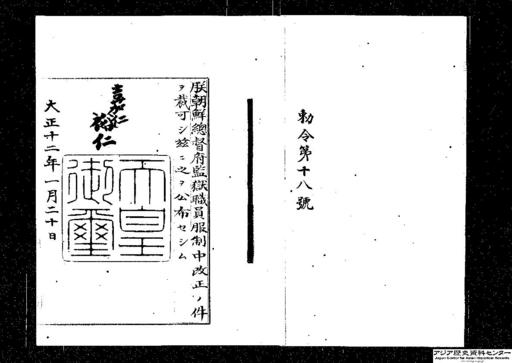 勅令第十八號
朕朝鮮總督府監獄職員服制中改正ノ件
ヲ裁可シ玆ニ之ヲ公布セシム
嘉仁
裕仁
天皇
御璽
大正十二年一月二十日
アジア歴史資料センター
Japan Center for Asian Historical Records